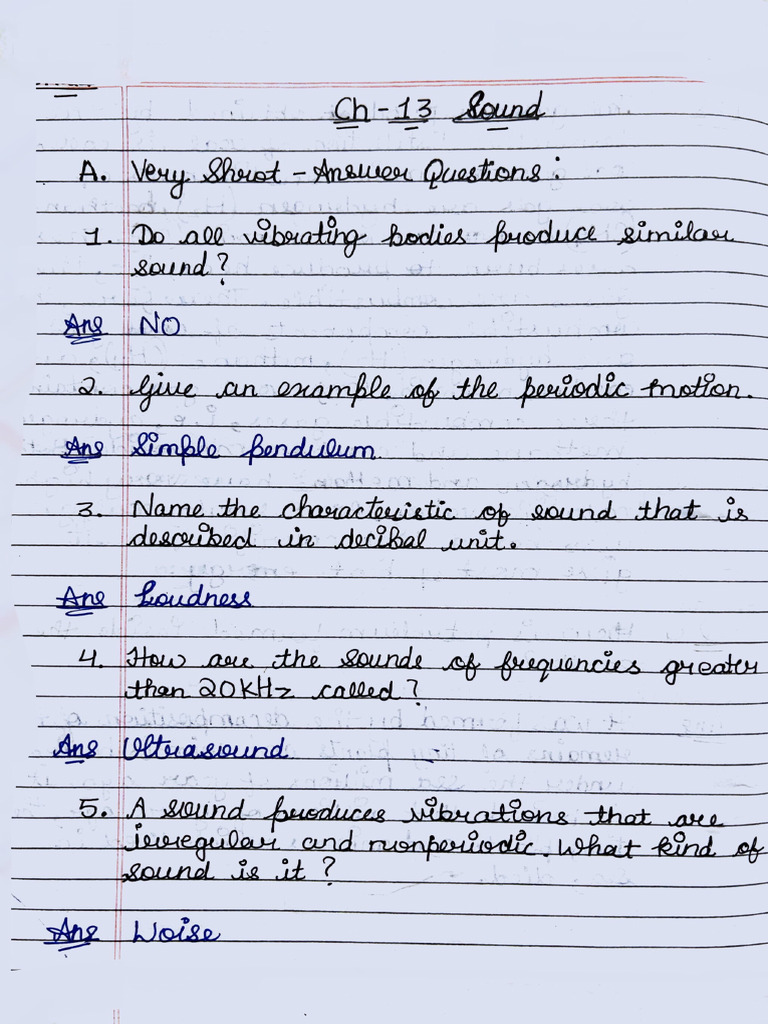 Ch-13 Sound
A. Very Shrot-Answer Questions:
1. Do all vibrating bodies produce similar
sound?
Ans NO
2. Give an example of the periodic motion.
Ans Simple pendulum.
3. Name the characteristic of sound that is
described in decibal unit.
Ans Loudness
4. How are the sounds of frequencies greater
than 20KHz called?
Ans Ultrasound
5. A sound produces vibrations that are
irregular and nonperiodic. What kind of
sound is it?
Ans Noise